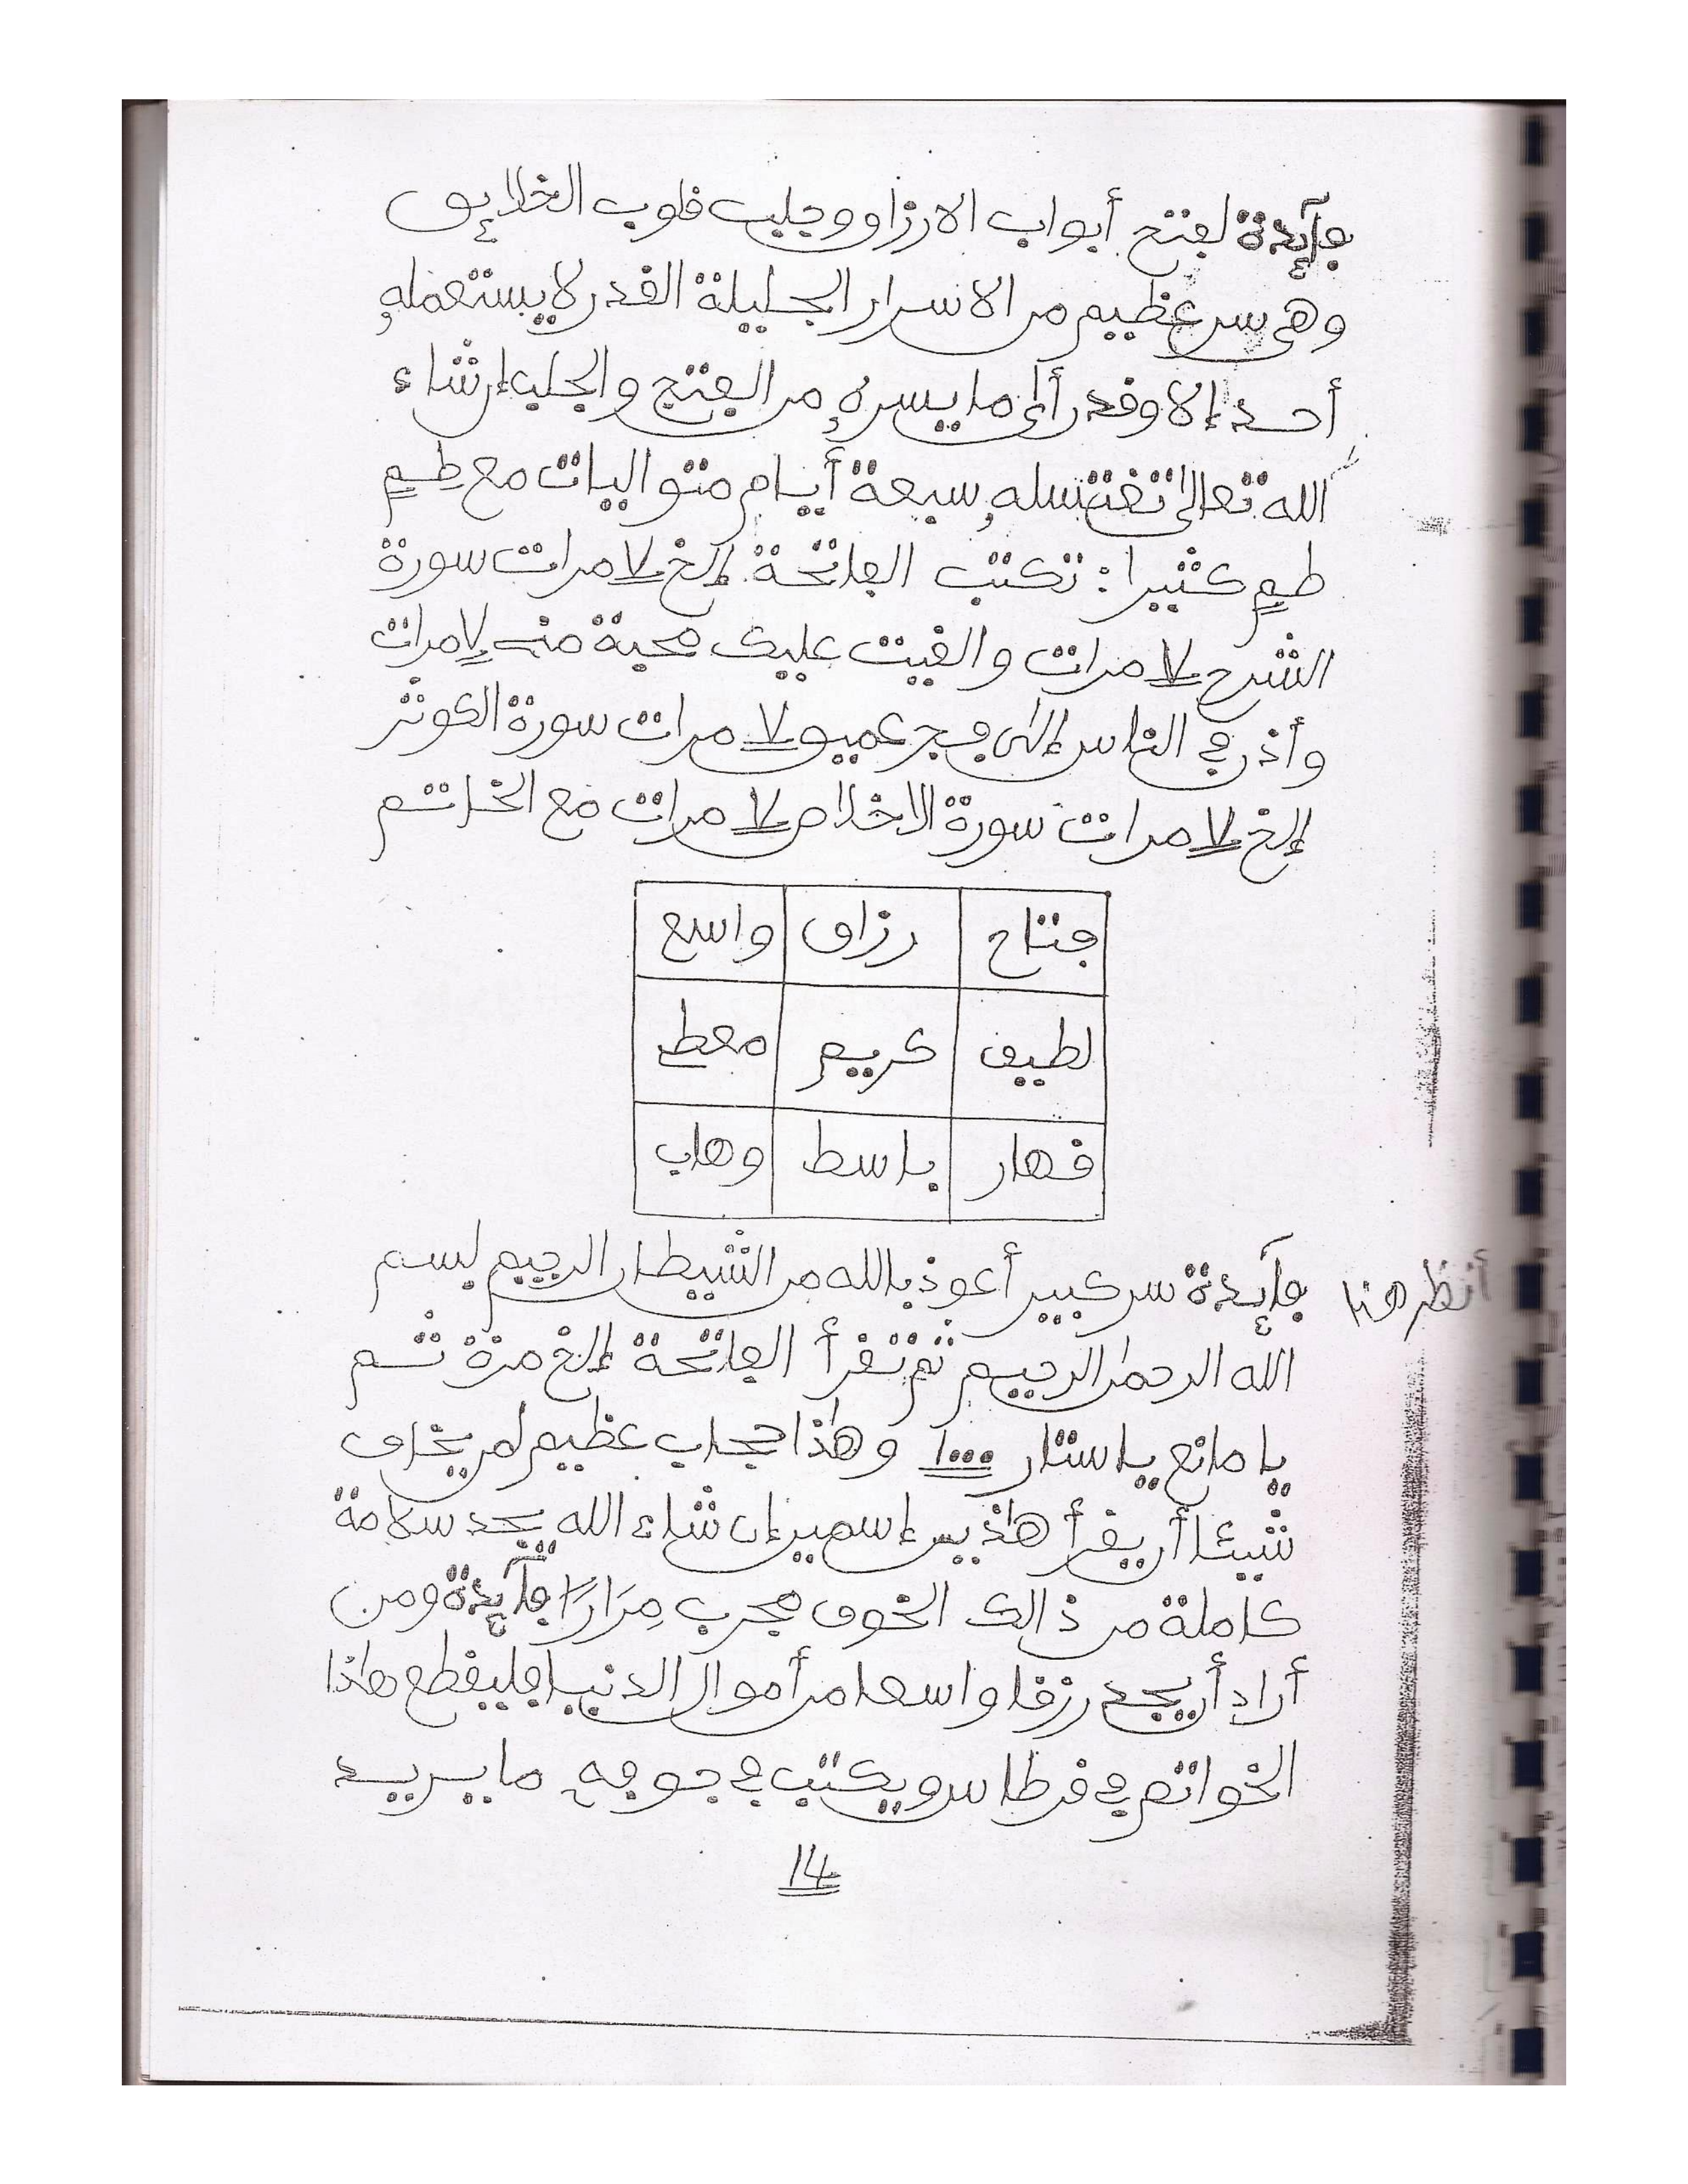 فآئدة لفتح أبواب الارزاق وجلب قلوب الخلايق
وهى سر عظيم من الاسرار الجليلة القدر لا يستعمله
أحد إلا وقد رأى ما يسره من الفتح والجلب إن شاء
الله تعالى تغتسله سبعة أيام متواليات مع طعم
طعم كثيرا: تكتب الفاتحة إلخ 7 مرات سورة
الشرح 7 مرات والقيت عليك محبة منى 7 مرات
وأذن في الناس إلى فج عميق 7 مرات سورة الكوثر
إلخ 7 مرات سورة الاخلاص 7 مرات مع الخاتم
فتاح رزاق واسع
لطيف كريم معطى
قهار باسط وهاب
أنظر هنا
فآئدة سر كبير أعوذ بالله من الشيطان الرجيم بسم
الله الرحمن الرحيم ثم تقرأ الفاتحة إلخ مرة ثم
يا مانع يا ستار 1000 وهذا حجاب عظيم لمن يخاف
شيئا أن يقرأ هاذين إسمين إن شاء الله يجد سلامة
كاملة من ذالك الخوف مجرب مِرَارًا فآئدة ومن
أراد أن يجد رزقا واسعا من أموال الدنيا فليقطع هاذا
الخواتم في قرطاس ويكتب في جوفه ما يريد
14